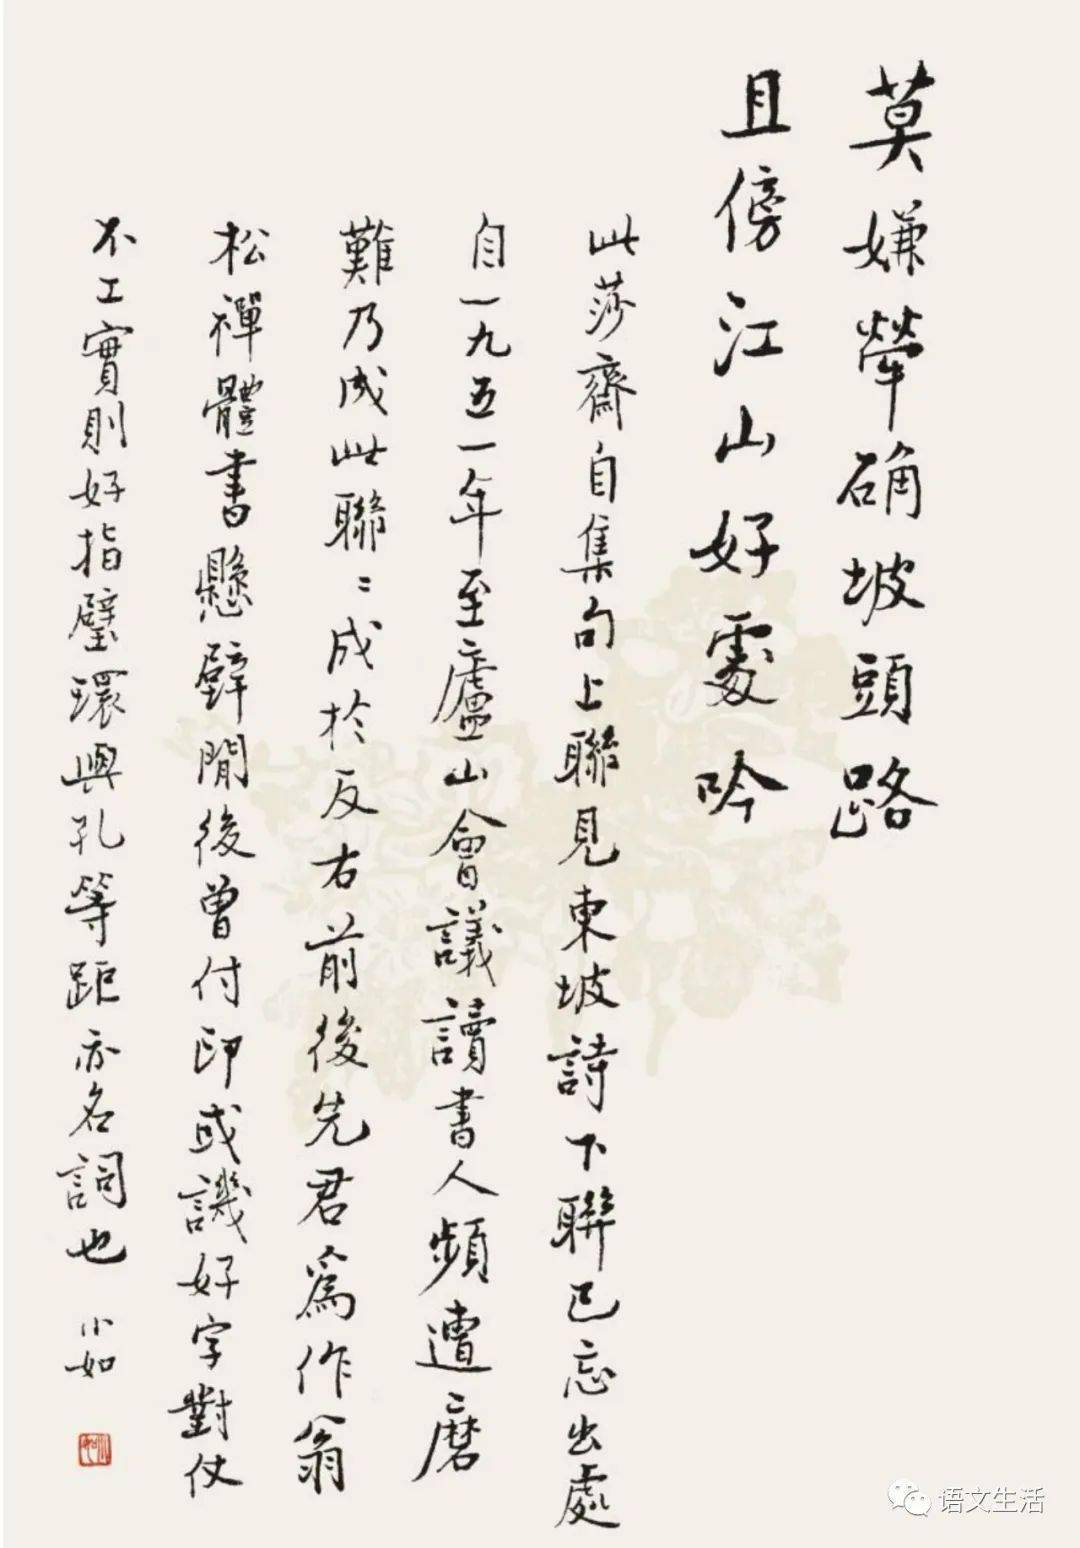 莫嫌犖确坡頭路
且傍江山好處吟
此莎齋自集句上聯見東坡詩下聯已忘出處
自一九五一年至廬山會議讀書人頻遭磨
難乃成此聯〻成於反右前後先君爲作翁
松禪體書懸壁間後曾付印或譏好字對仗
不工實則好指璧環與孔等距亦名詞也 小如
语文生活